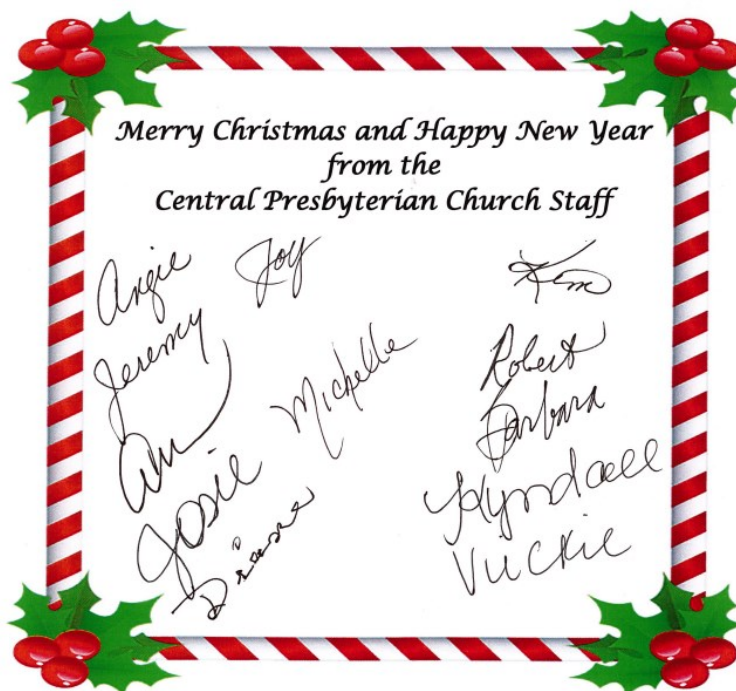 Merry Christmas and Happy New Year
from the
Central Presbyterian Church Staff
Angie
Joy
Kim
Jeremy
Michelle
Robert
Barbara
Josie
Kyndall
Diane
Vickie